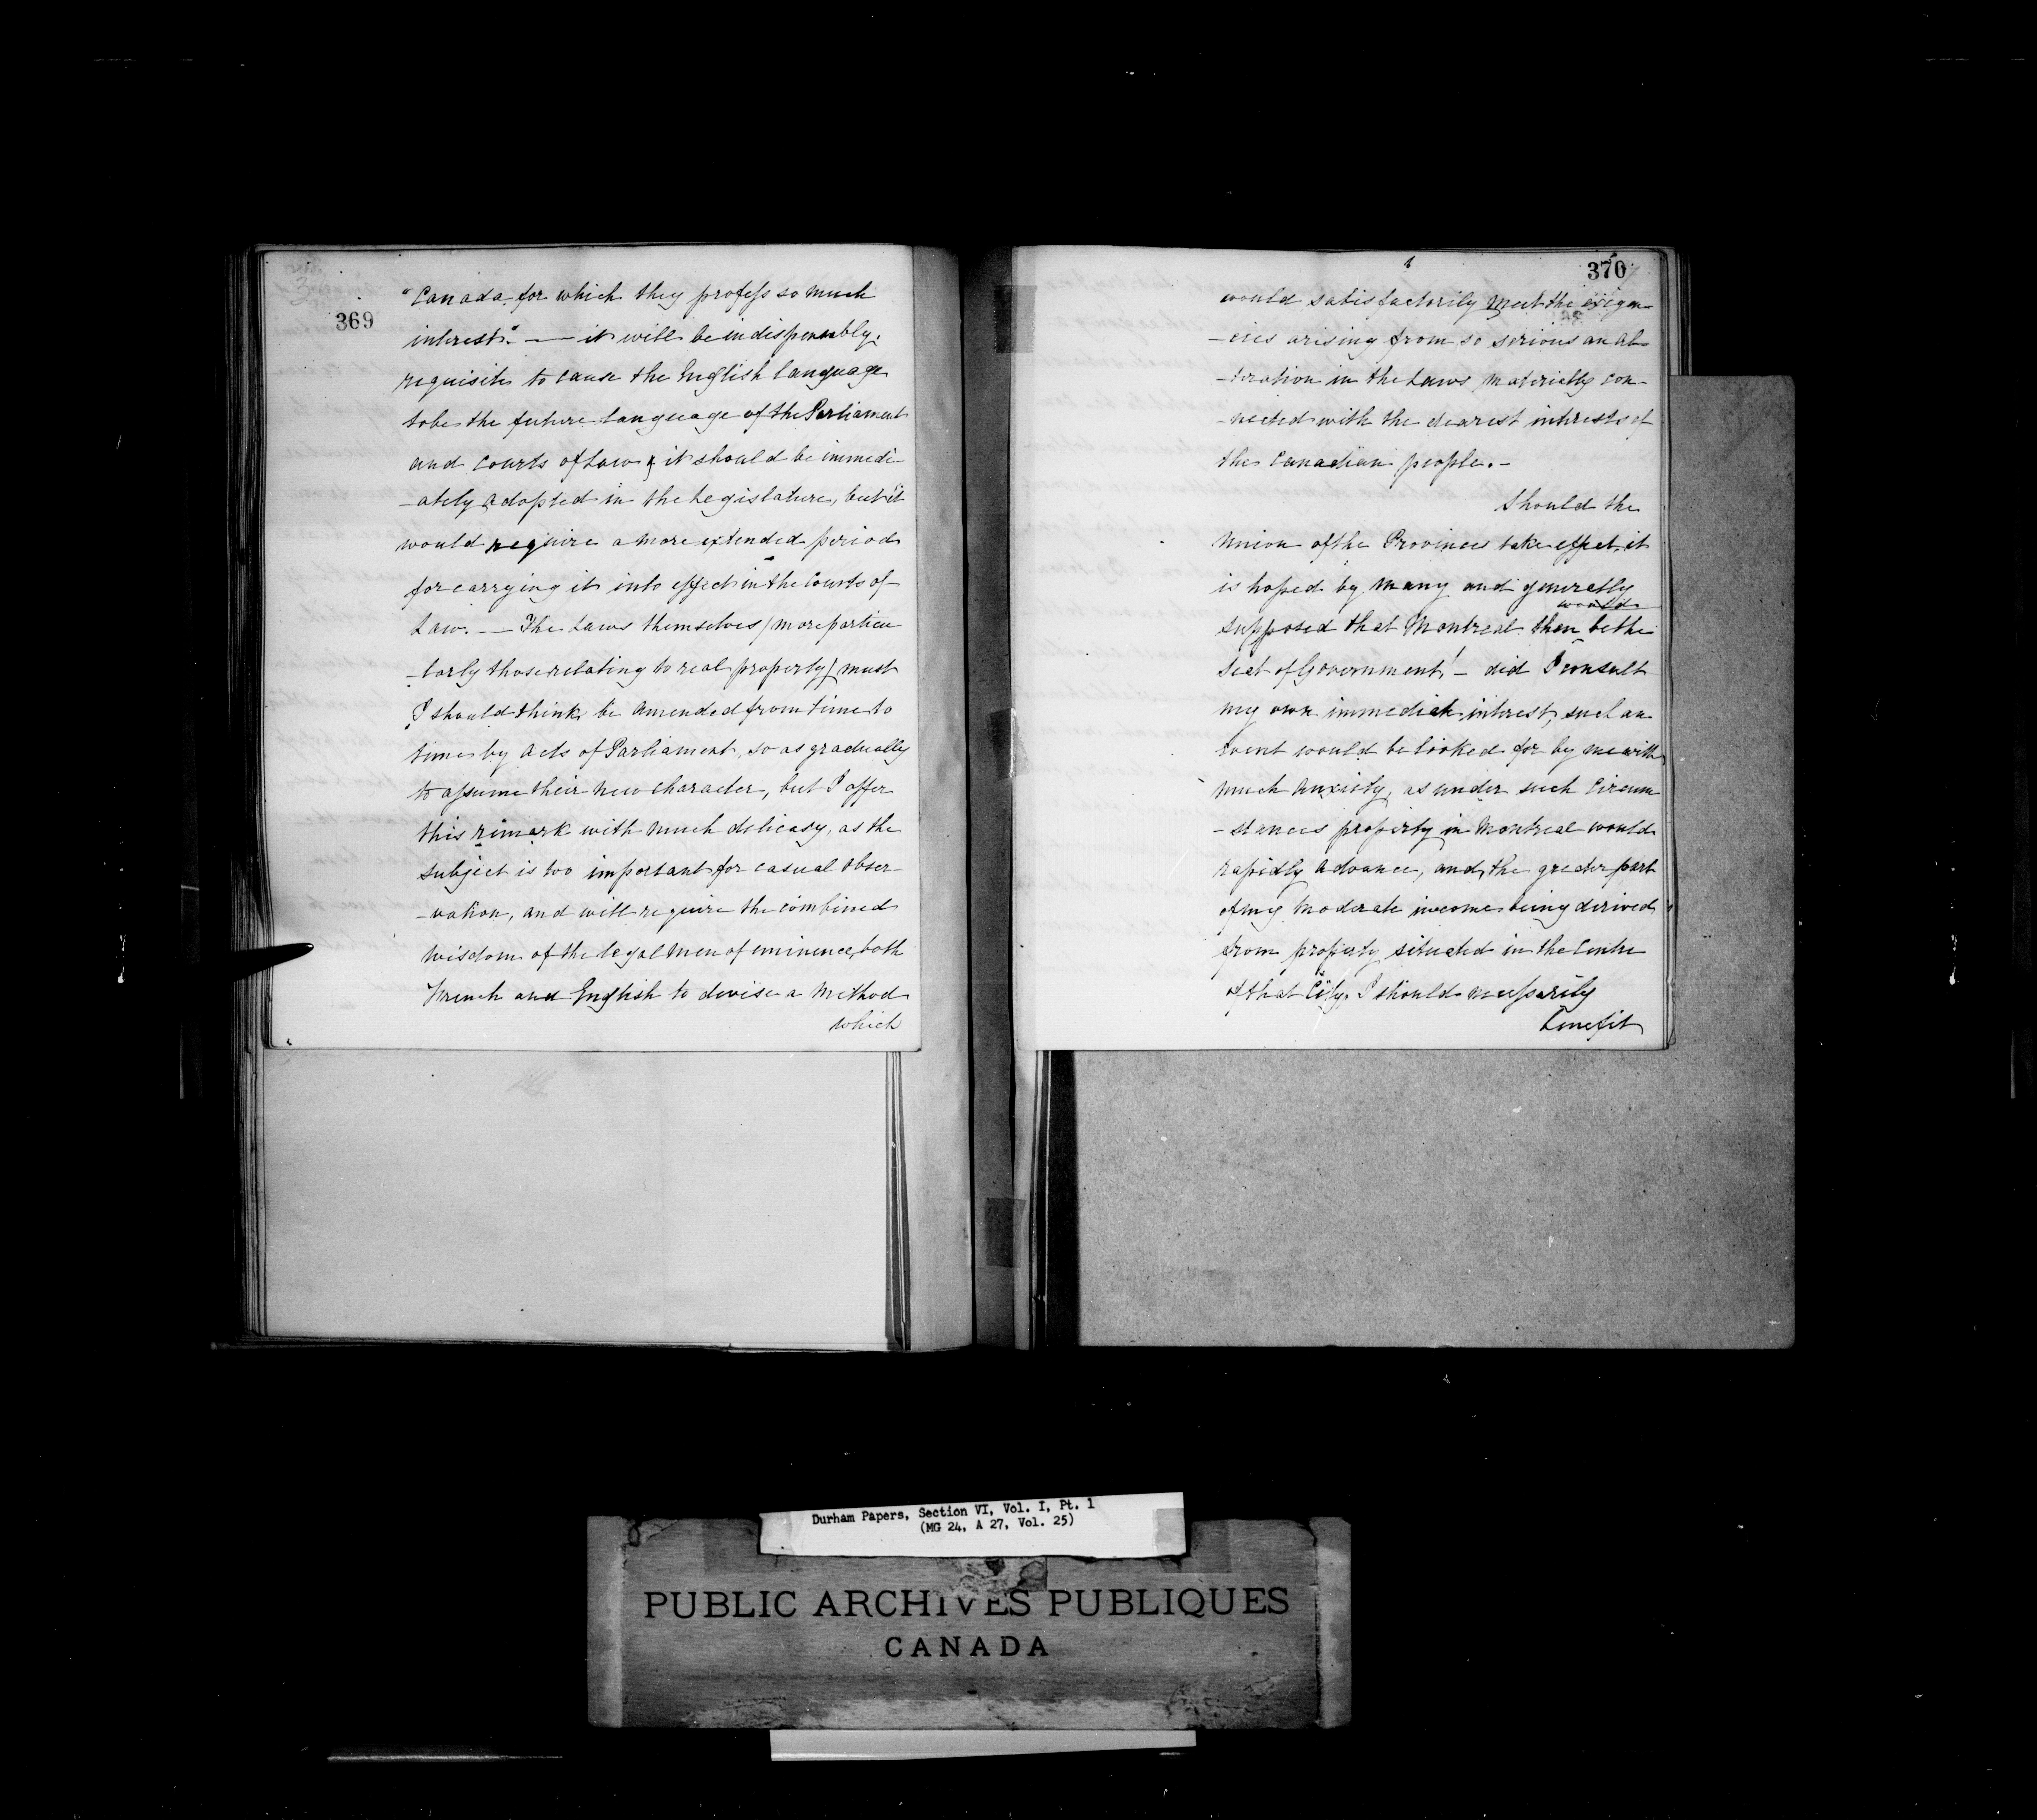 369
"Canada for which they profess so much
interest." — it will be indispensably
requisite to cause the English language
to be the future language of the Parliament
and Courts of Law, it should be immedi-
-ately adopted in the Legislature, but it
would require a more extended period
for carrying it into effect in the Courts of
Law. — The Laws themselves / more particu
-larly those relating to real property / must
I should think be amended from time to
time by Acts of Parliament, so as gradually
to assume their new character, but I offer
this remark with much delicasy, as the
subject is too important for casual obser-
-vation, and will require the combined
wisdom of the legal men of eminence, both
French and English to devise a method
which
370
would satisfactorily meet the exigen-
-cies arising from so serious an al-
-teration in the Laws materially con-
-nected with the dearest interests of
the Canadian people. -
Should the
Union of the Provinces take effect, it
is hoped by many and generally
would
supposed that Montreal then be the
Seat of Government! - did I consult
my own immediate interest, such an
event would be looked for by me with
much anxiety, as under such circum
-stances property in Montreal would
rapidly advance, and, the greater part
of my moderate income being derived
from property situated in the Centre
of that City, I should necessarily
benefit
Durham Papers, Section VI, Vol. I, Pt. 1
(MG 24, A 27, Vol. 25)
PUBLIC ARCHIVES PUBLIQUES
CANADA